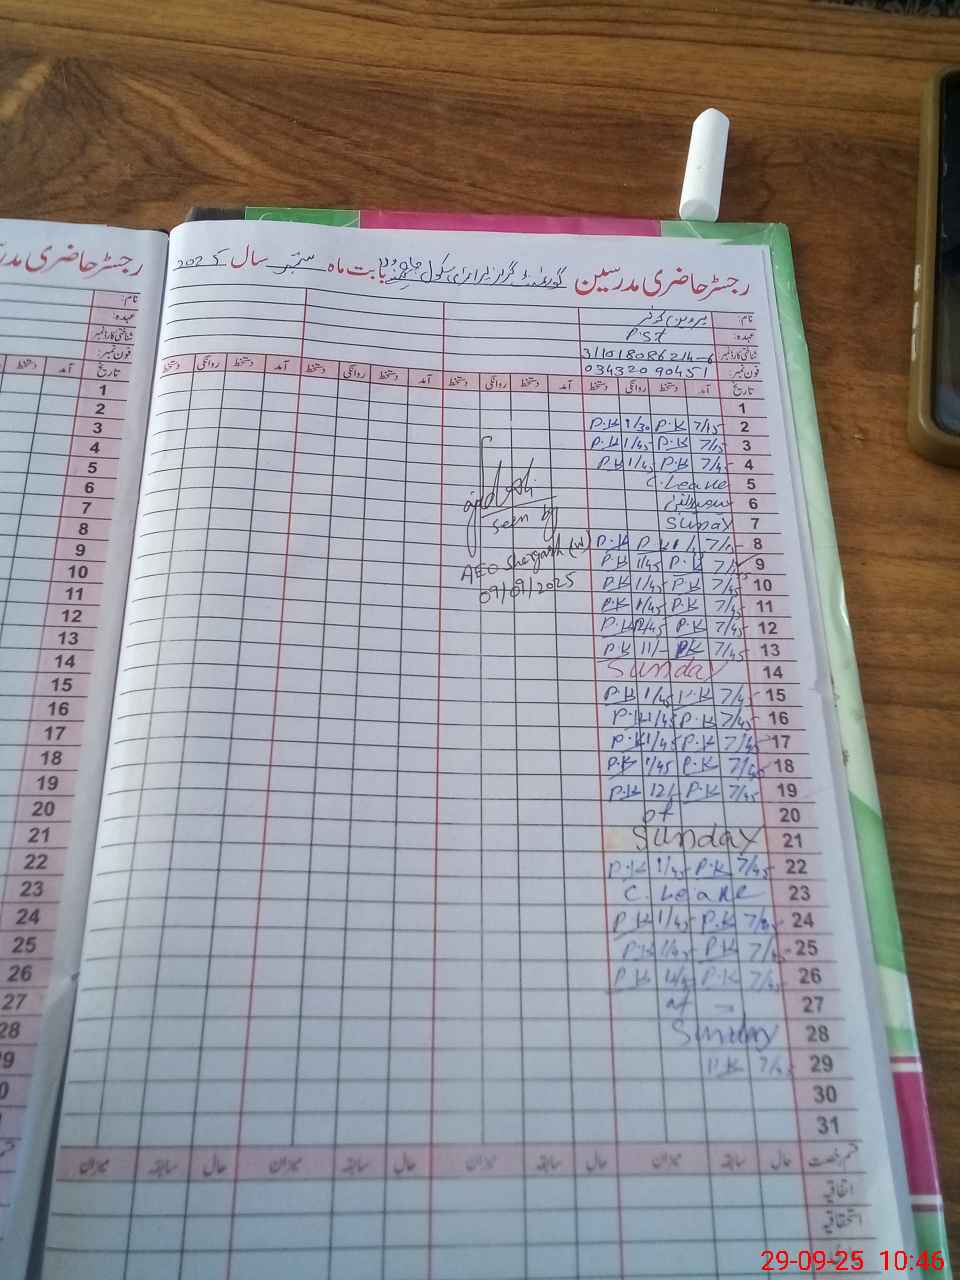 رجسٹر حاضری مدرسین گورنمنٹ گرلز پرائمری سکول بابت ماہ ستمبر سال 2025
نام: پروین کوثر
عہدہ: P.S.T
شناختی کارڈ نمبر 31101 8086214-6
فون نمبر: 03432090451
تاریخ آمد دستخط روانگی دستخط آمد دستخط روانگی دستخط آمد دستخط روانگی دستخط
1
2 7/45 P.K 1/30 P.K
3 7/45 P.K 1/45 P.K
4 7/45 P.K 1/45 P.K
5 C. Leave
6
7 Sunday
8 P.K P.K
9 P.K 1/45 P.K
10 7/45 P.K 1/45 P.K
11 7/45 P.K 1/45 P.K
12 7/45 P.K 12/45 P.K
13 7/45 P.K 11/- P.K
14 Sunday
15 7/45 P.K 1/45 P.K
16 7/45 P.K 1/45 P.K
17 7/45 P.K 1/45 P.K
18 7/45 P.K 1/45 P.K
19 7/45 P.K 12/ P.K
20 of
21 Sunday
22 7/45 P.K 1/45 P.K
23 C. Leave
24 7/45 P.K 1/45 P.K
25 7/45 P.K 1/45 P.K
26 7/45 P.K P.K
27 of -
28 Sunday
29 7/45 P.K
30
31
seen by
AEO Shergarh (W)
09/09/2025
قسم رخصت حال سابقہ میزان حال سابقہ میزان حال سابقہ میزان
اتفاقیہ
استحقاقیہ
رجسٹر حاضری
نام:
عہدہ:
شناختی کارڈ نمبر
فون نمبر:
تاریخ آمد دستخط
1
2
3
4
5
6
7
8
9
10
11
12
13
14
15
16
17
18
19
20
21
22
23
24
25
26
27
28
29-09-25 10:46